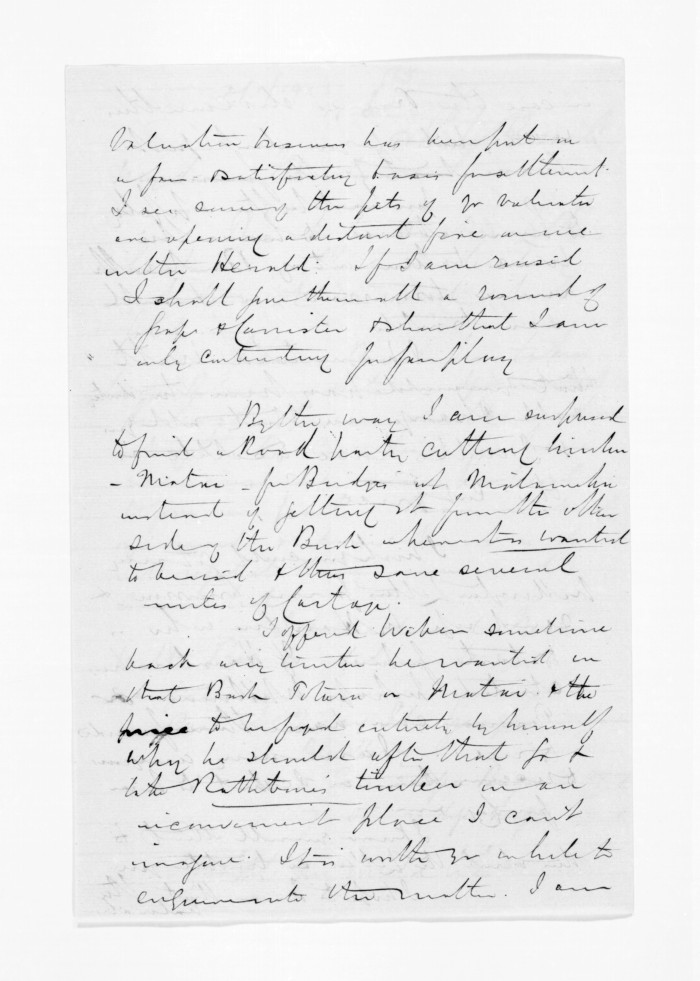 Valuation business has been put on
a fair & satisfactory basis for settlement.
I see some of the pets of yr valuator
are opening a distant fire on me
in the Herald. If I am roused
I shall give them all a round of
Grape & Cannister & show that I am
only contending for fair play
By the way I am surprised
to find a Road party cutting timber
- Matai - for Bridges at Matamau
instead of getting it from the other
side of the Bush where it is wanted
to be used & thus save several
miles of Cartage.
I offered Weber sometime
back any timber he wanted in
that Bush Totara or Matai & the
price to be fixed entirely by himself
why he should after that go &
take Rathbone's timber in an
inconvenient place I can't
imagine. It is worth yr while to
enquire into the matter. I am